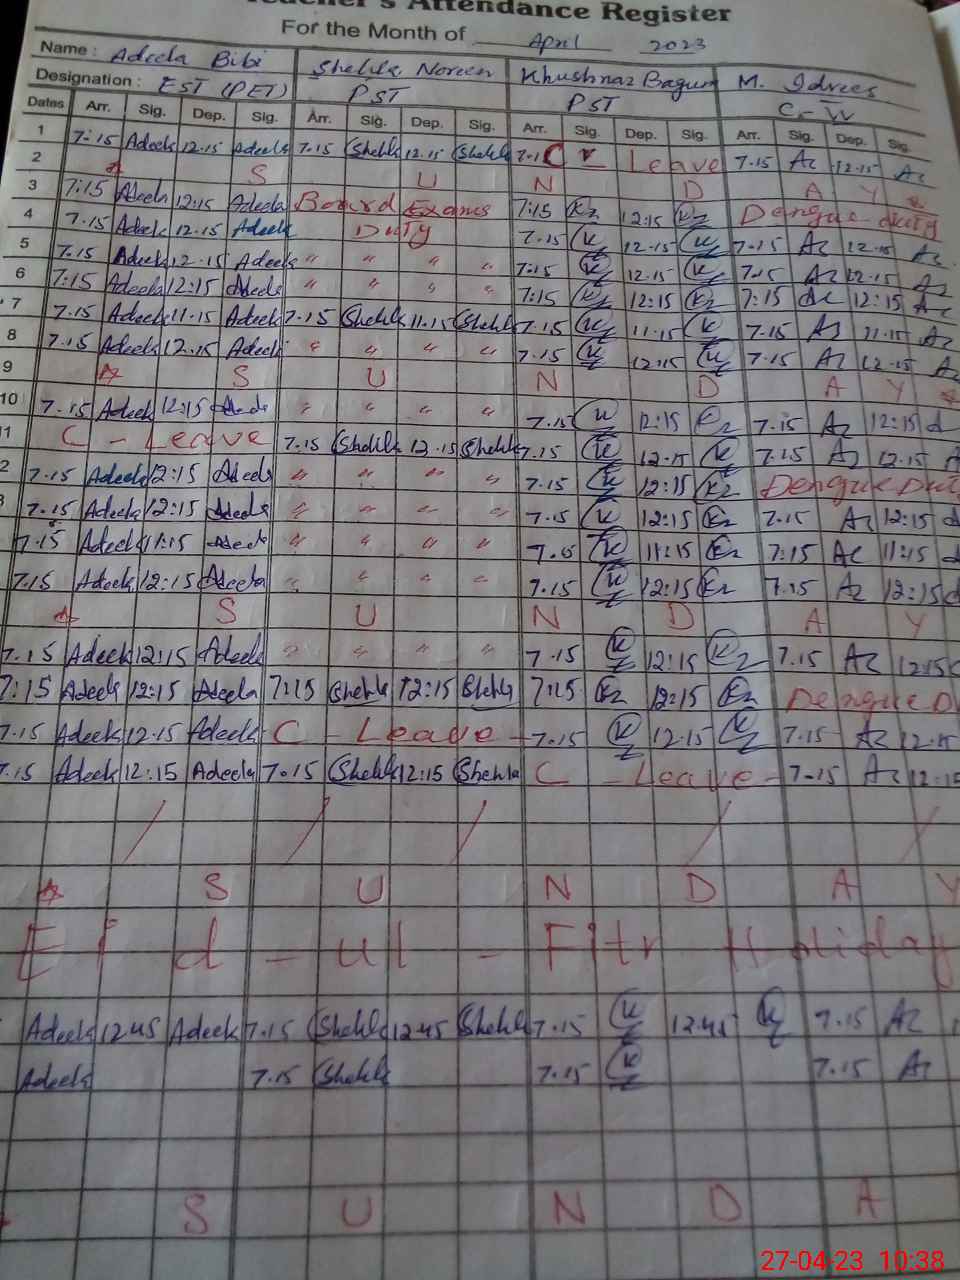 Teacher's Attendance Register
For the Month of April 2023
Name : Adeela Bibi Shehla Noreen Khushnaz Bagum M. Idrees
Designation : EST (PET) PST PST C-IV
Dates Arr. Sig. Dep. Sig. Arr. Sig. Dep. Sig. Arr. Sig. Dep. Sig. Arr. Sig. Dep. Sig.
1 7:15 Adeela 12.15 Adeela 7.15 Shehla 12.15 Shehla 7.1 C Leave 7.15 Az 12.15 Az
2 S U N D A Y
3 7:15 Adeela 12:15 Adeela Board Exams 7:15 Kz 12:15 Kz Dengue duty
4 7.15 Adeela 12.15 Adeela Duty 7.15 Kz 12.15 Kz 7.15 Az 12.15 Az
5 7.15 Adeela 12.15 Adeela " " " " 7:15 Kz 12.15 Kz 7.15 Az 12.15 Az
6 7:15 Adeela 12:15 Adeela " " " " 7:15 Kz 12:15 Kz 7:15 Az 12:15 Az
7 7.15 Adeela 11.15 Adeela 7.15 Shehla 11.15 Shehla 7.15 Kz 11.15 Kz 7.15 Az 11.15 Az
8 7.15 Adeela 12.15 Adeela " " " " 7.15 Kz 12.15 Kz 7.15 Az 12.15 Az
9 S U N D A Y
10 7.15 Adeela 12:15 Adeela " " " " 7.15 Kz 12:15 Kz 7.15 Az 12:15
11 C - Leave 7.15 Shehla 12.15 Shehla 7.15 Kz 12.15 Kz 7.15 Az 12.15
2 7.15 Adeela 12:15 Adeela " " " " 7.15 Kz 12:15 Kz Dengue Duty
7.15 Adeela 12:15 Adeela " " " " 7.15 Kz 12:15 Kz 7.15 Az 12:15
7.15 Adeela 11:15 Adeela " " " " Kz 11:15 Kz 7:15 Az 11:15
7.15 Adeela 12:15 Adeela " " " " 7.15 Kz 12:15 Kz 7.15 Az 12:15
S U N D A Y
7.15 Adeela 12:15 Adeela " " " " 7.15 Kz 12:15 Kz 7.15 Az 12:15
7:15 Adeela 12:15 Adeela 7:15 Shehla 12:15 Shehla 7:15 Kz 12:15 Kz Dengue D
7.15 Adeela 12.15 Adeela C - Leave - 7.15 Kz 12.15 Kz 7.15 Az 12.15
7.15 Adeela 12:15 Adeela 7.15 Shehla 12:15 Shehla C - Leave - 7.15 Az 12:15
/ / / / /
S U N D A Y
Eid - ul - Fitr Holiday
Adeela 12.45 Adeela 7.15 Shehla 12.45 Shehla 7.15 Kz 12.45 Kz 7.15 Az
Adeela 7.15 Shehla 7.15 Kz 7.15 Az
S U N D A
27-04-23 10:38